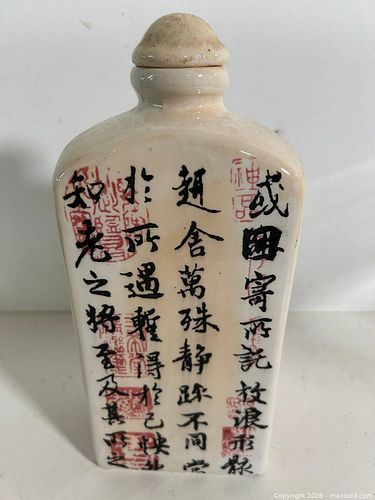 神品
或因寄所託放浪形骸
趣舍萬殊静躁不同當
於所遇暫得於己
知老之將至及其所之
Copyright 2026 - maxsold.com